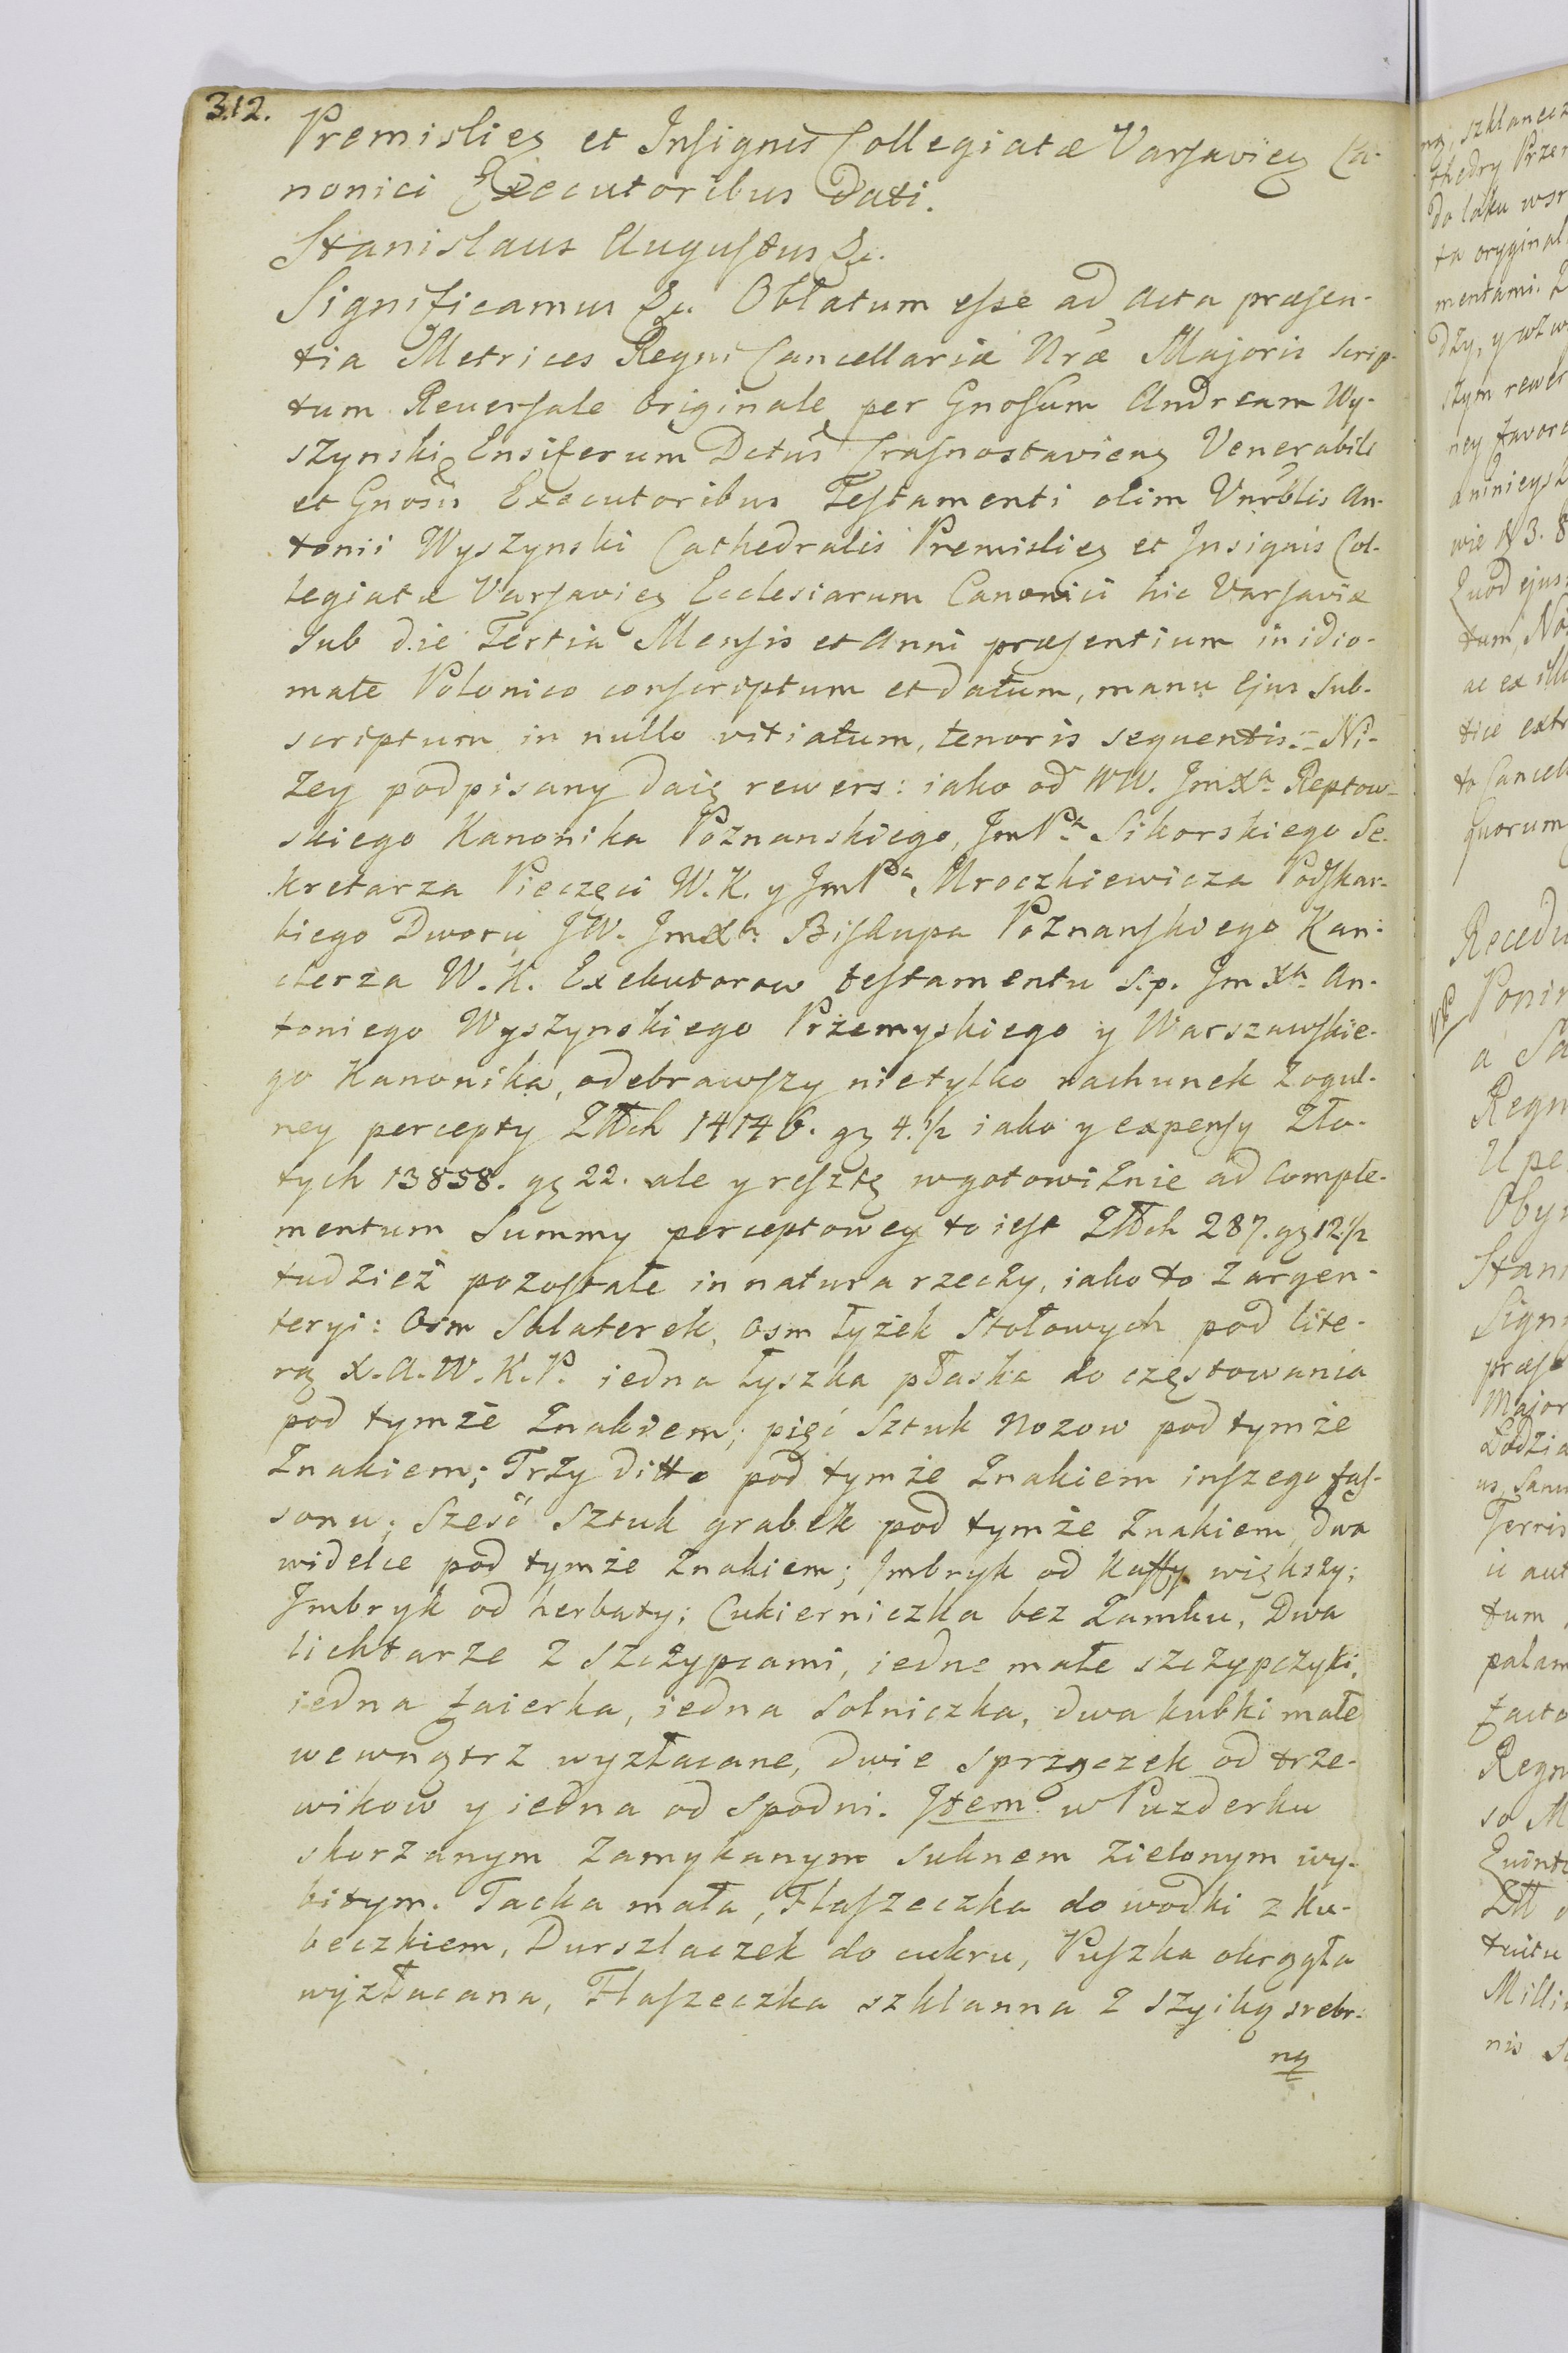 312.
Premislieꝫ et Insignis Collegiatæ Varsavieꝫ Ca-
nonici Executoribus Dati.
Stanislaus Augustus &c.
Significamus &c. Oblatum esse ad Acta præsen-
tia Metrices Regni Cancellariæ Nræ Majoris scrip-
tum Reversale originale per Gnosum Andream Wy-
szynski Ensiferum Dctus Crasnostavienꝫ Venerabili
et Gnosis Executoribus Testamenti olim Vnrblis An-
tonii Wyszynski Cathedralis Premislieꝫ et Insignis Col-
legiatæ Varsavieꝫ Ecclesiarum Canonici hic Varsaviæ
sub die Tertia Mensis et Anni præsentium in idio-
mate Polonico conscriptum et datum, manu Ejus sub-
scriptum in nullo vitiatum, tenoris sequentis:- Ni-
zey podpisany daię rewers: iako od WW. Jmxa Reptow-
skiego Kanonika Poznanskiego, JmPa Sikorskiego Se-
kretarza Pieczęci W.K. y JmPa Mroczkiewicza Podskar-
biego Dworu JW. Jmxa Biskupa Poznanskiego Kan-
clerza W.K. Exekutorow testamentu s.p. Jmxa An-
toniego Wyszynskiego Przemyskiego y Warszawskie-
go Kanonika, odebrawszy nietylko rachunek zogul-
ney percepty Złłch 14146. gꝫ 4.½ iako y expensy Zło-
tych 13858. gꝫ 22. ale y resztę wgotowiznie ad comple-
mentum summy perceptowey to iest Złłch 287. gꝫ 12.½
tudzież pozostałe in natura rzeczy, iako to z argen-
teryi: osm Salaterek, osm łyżek stołowych pod lite-
rą X.A.W.K.P. iedna łyszka płaska do częstowania
pod tymże znakiem; pięć sztuk nozow pod tymże
znakiem; Trzy ditto pod tymże znakiem inszego fas-
sonu; sześć sztuk grabek pod tymże znakiem, dwa
widelce pod tymże znakiem; Imbryk od kaffy większy;
Imbryk od herbaty; Cukierniczka bez zamku, Dwa
lichtarze z szczypcami, iedne małe szczypczyki,
iedna faierka, iedna solniczka, dwa kubki małe
wewnątrz wyzłacane, dwie sprzączek od trze-
wikow y iedna od spodni. Item w Puzderku
skorzanym zamykanym suknem zielonym wy-
bitym. Tacka mała, Flaszeczka do wodki z ku-
beczkiem, Durszlaczek do cukru, Puszka okrągła
wyzłacana, Flaszeczka szklanna z szyiką srebr-
ną